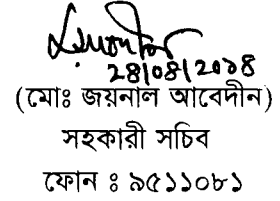 28/08/2018
(মোঃ জয়নাল আবেদীন)
সহকারী সচিব
ফোন ঃ ৯৫১১০৮১